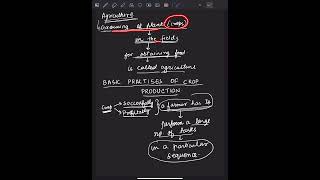 Agriculture
Growing of plants (crops)
in the fields
for obtaining food
is called agriculture
BASIC PRACTISES OF CROP
PRODUCTION
Crop → Successfully → a farmer has to
→ Profitably
perform a large
no of tasks
in a particular
sequence